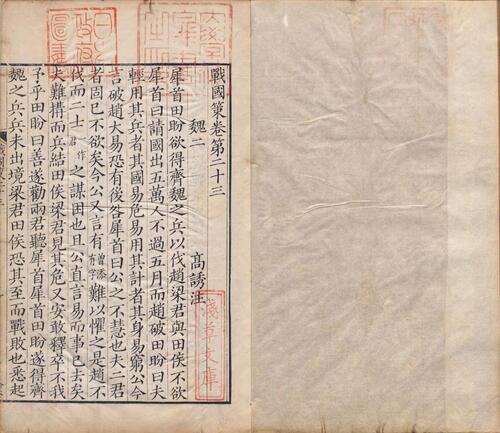 戰國策卷第二十三
魏二
高誘注
犀首田盼欲得齊魏之兵以伐趙梁君與田侯不欲
犀首曰請國出五萬人不過五月而趙破田盼曰夫
輕用其兵者其國易危易用其計者其身易窮公今
言破趙大易恐有後咎犀首曰公之不慧也夫二君
者固已不欲矣今公又言有曾添有字難以懼之是趙不
伐而二士君作之謀困也且公直言易而事已去矣
夫難搆而兵結田侯梁君見其危又安敢釋卒不我
予乎田盼曰善遂勸兩君聽犀首犀首田盼遂得齊
魏之兵兵未出境梁君田侯恐其至而戰敗也悉起
淺草文庫